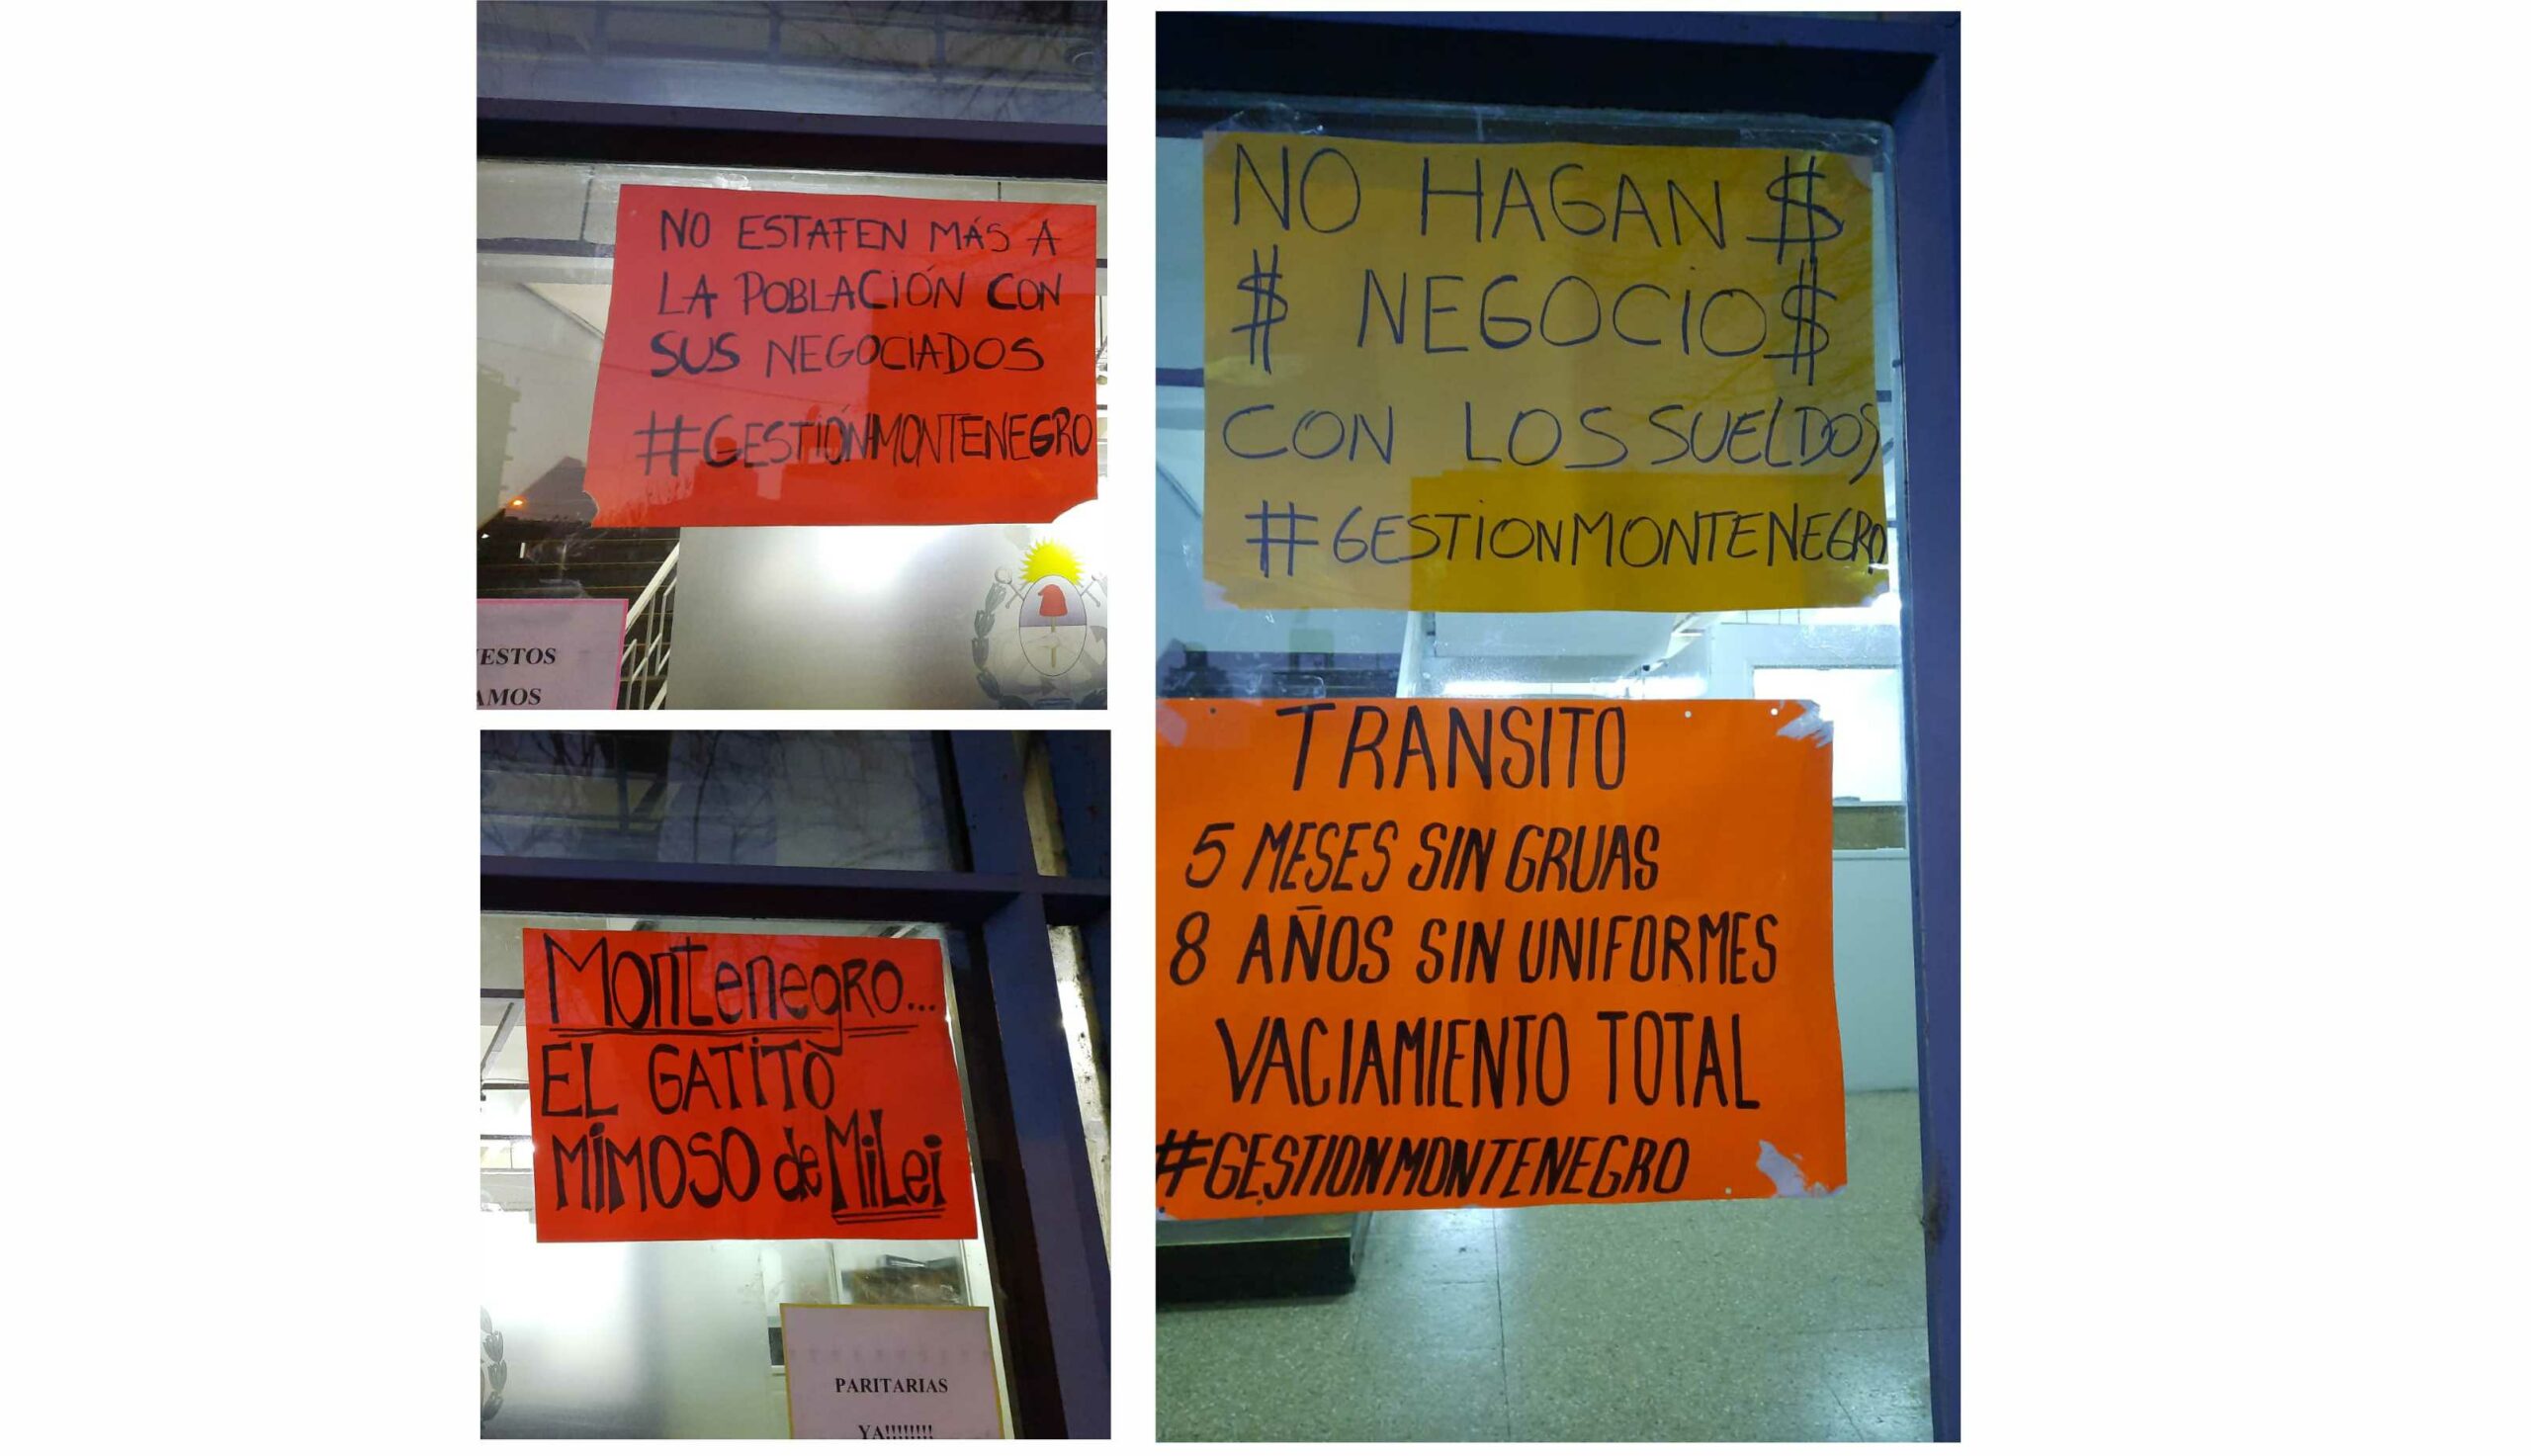 NO ESTAFEN MÁS A
LA POBLACIÓN CON
SUS NEGOCIADOS
#GESTIÓNMONTENEGRO
ESTOS
AMOS
Montenegro...
EL GATITO
MIMOSO de MiLei
PARITARIAS
YA!!!!!!!!
NO HAGAN $
$ NEGOCIO$
CON LOS SUELDOS
#GESTIONMONTENEGRO
TRANSITO
5 MESES SIN GRUAS
8 AÑOS SIN UNIFORMES
VACIAMIENTO TOTAL
#GESTIONMONTENEGRO